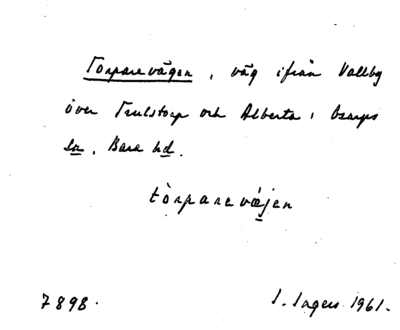 Torparevägen, väg ifrån Vallby
över Trulstorp och Alberta i Esarps
sn, Bara hd.
tòrparevä̀jen
7898. I. Ingers 1961.